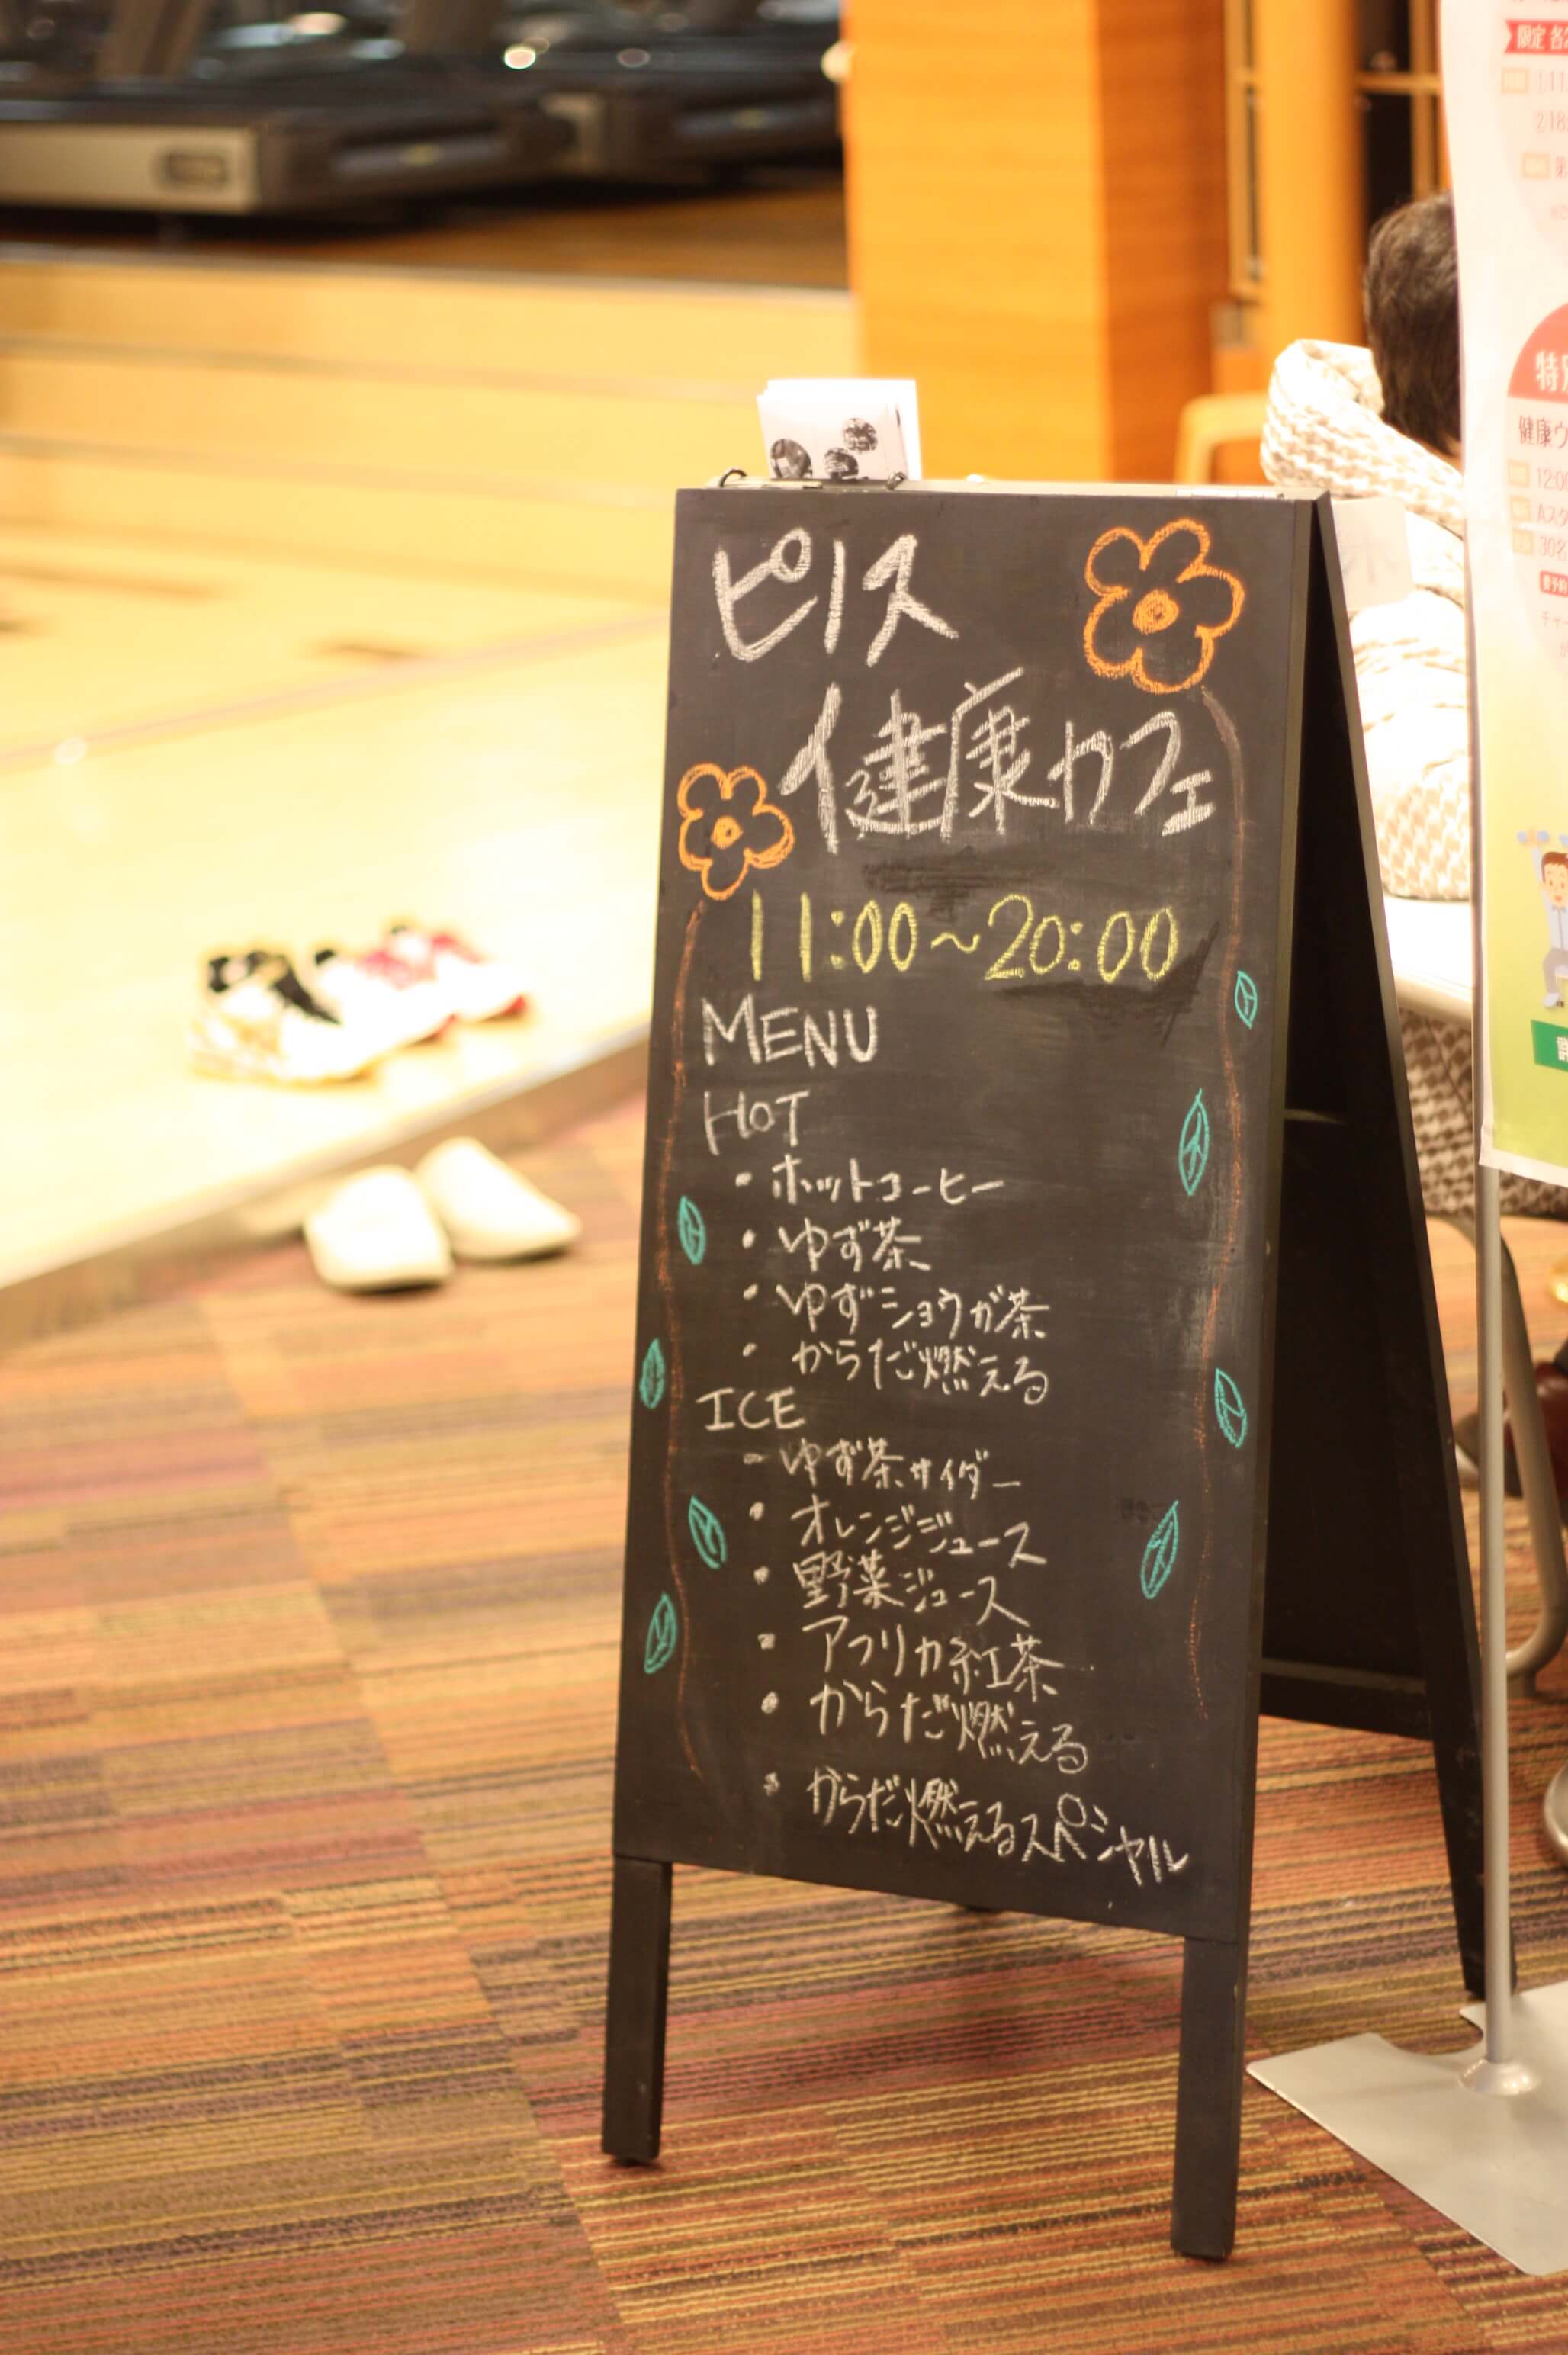 ピノス
健康カフェ
11:00～20:00
MENU
HOT
・ホットコーヒー
・ゆず茶
・ゆずショウガ茶
・からだ燃える
ICE
・ゆず茶サイダー
・オレンジジュース
・野菜ジュース
・アフリカ紅茶
・からだ燃える
・からだ燃えるスペシャル
限定 各
特
健康ウ
12:00
Aスタ
30名